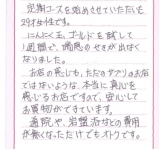 定期コースを始めさせていただいた
29才女性です。
にんにく玉ゴールドを試して
1週間で、
なりました。
お店の感じも、ただのサプリのお店
ではないような、本当に真心を
感じるお店ですので、安心して
お買物ができています。
通院や、岩盤浴などの費用
が無くなっただけでもオトクです。